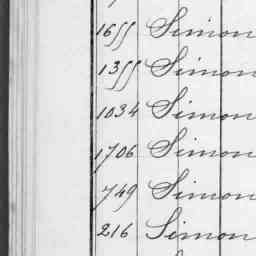 1655 Simon
1355 Simon
1034 Simon
1706 Simon
749 Simon
216 Simon